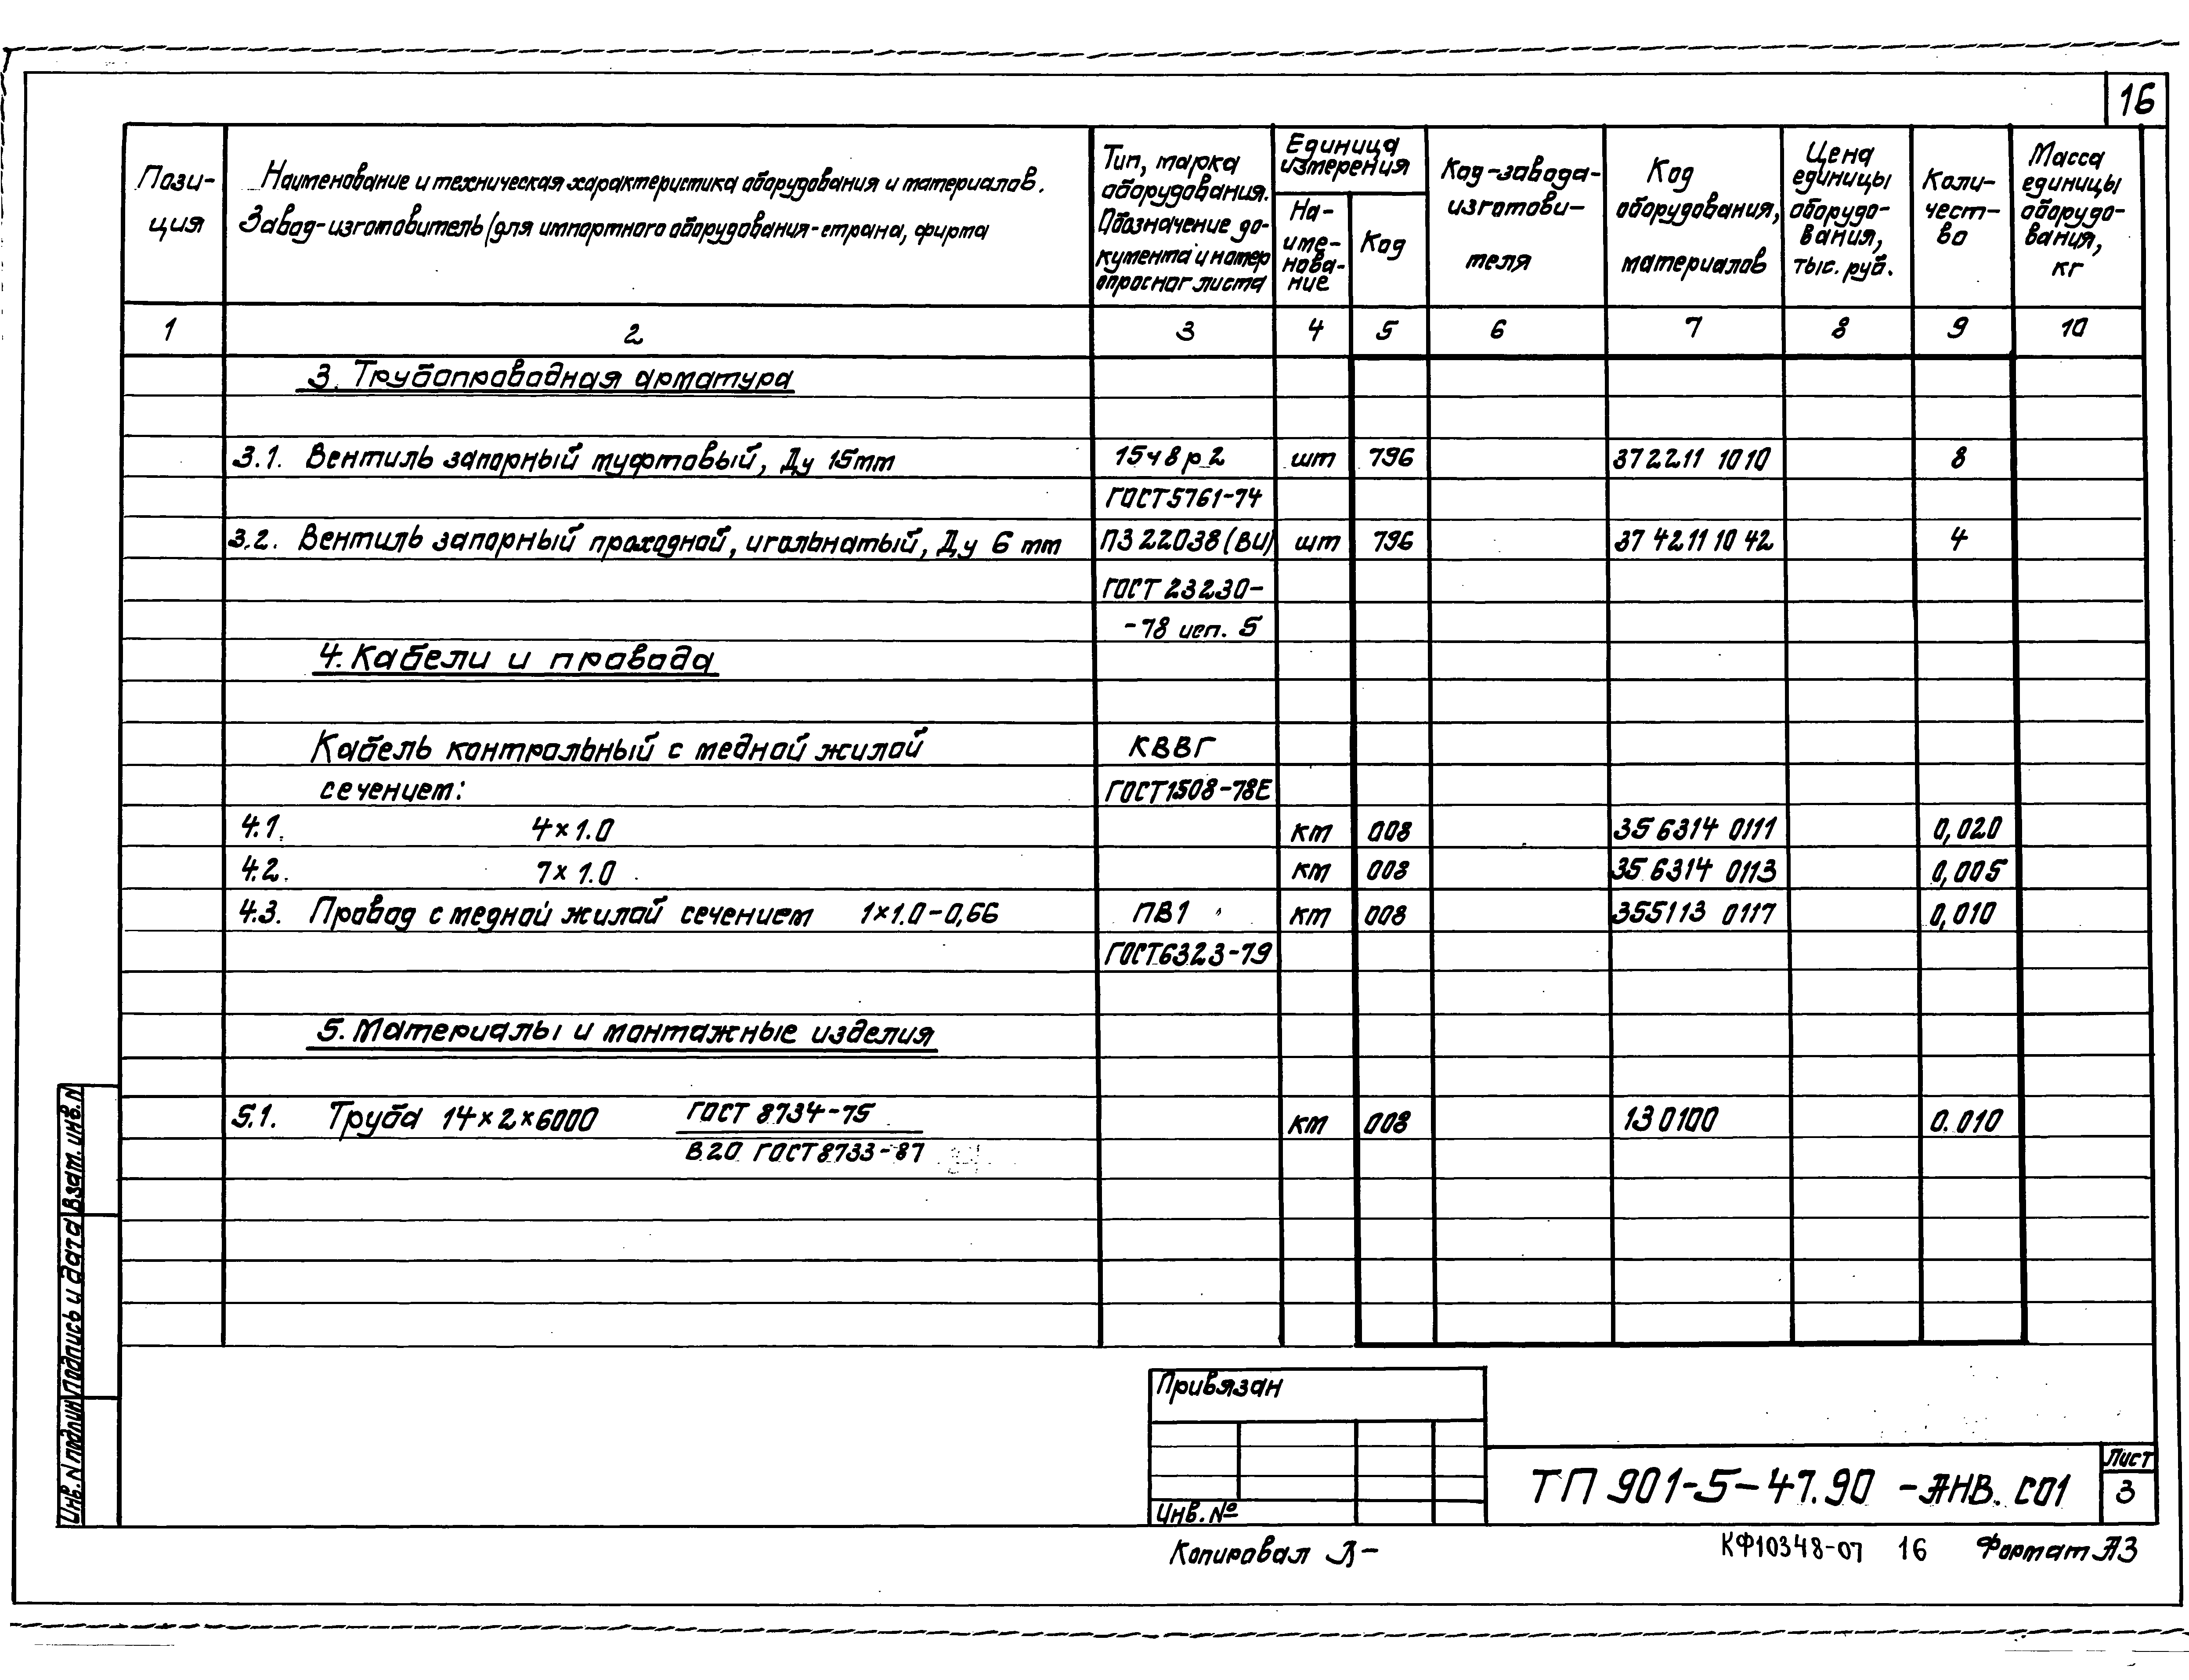 16
Пози-
ция
Наименование и техническая характеристика оборудования и материалов.
Завод-изготовитель (для импортного оборудования-страна, фирма
Тип, марка
оборудования.
Обозначение до-
кумента и номер
опросног листа
Единица
измерения
На-
име-
нова-
ние
Код
Код-завода-
изготови-
теля
Код
оборудования,
материалов
Цена
единицы
оборудо-
вания,
тыс. руб.
Коли-
чест-
во
Масса
единицы
оборудо-
вания,
кг
1 2 3 4 5 6 7 8 9 10
3. Трубопроводная арматура
3.1. Вентиль запорный муфтовый, Ду 15мм 15ч8р2 шт 796 372211 1010 8
ГОСТ5761-74
3.2. Вентиль запорный проходной, игольчатый, Ду 6 мм ПЗ 22038(ВИ) шт 796 37 4211 10 42 4
ГОСТ 23230-
-78 исп. 5
4. Кабели и провода
Кабель контрольный с медной жилой КВВГ
сечением: ГОСТ1508-78Е
4.1. 4×1.0 км 008 35 6314 0111 0,020
4.2. 7×1.0 км 008 35 6314 0113 0,005
4.3. Провод с медной жилой сечением 1×1.0-0,66 ПВ1 км 008 355113 0117 0,010
ГОСТ6323-79
5. Материалы и монтажные изделия
5.1. Труба 14×2×6000 ГОСТ 8734-75 км 008 13 0100 0.010
В20 ГОСТ8733-87
Взам. инв. N
Подпись и дата
Инв. N подлин
Привязан
Инв. №
ТП 901-5-47.90 -АНВ. СО1
Лист
3
Копировал
КФ10348-07 16 Формат А3